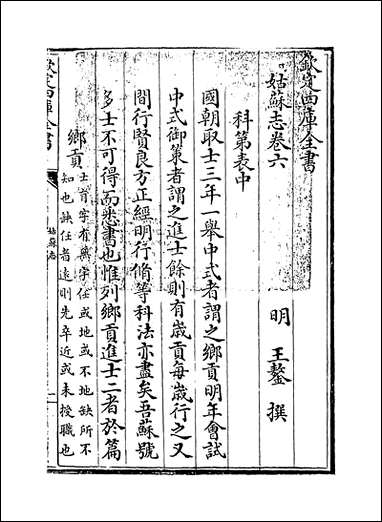 欽定四庫全書
姑蘇志卷六
明 王鏊 撰
科第表中
國朝取士三年一舉中式者謂之鄉貢明年會試
中式御策者謂之進士餘則有歲貢每歲行之又
間行賢良方正經明行脩等科法亦盡矣吾蘇號
多士不可得而悉書也惟列鄉貢進士二者於篇
鄉貢
士首字有無字任或地或不地缺所不
知也缺任者遠則先卒近或未授職也
欽定四庫全書
姑蘇志
一